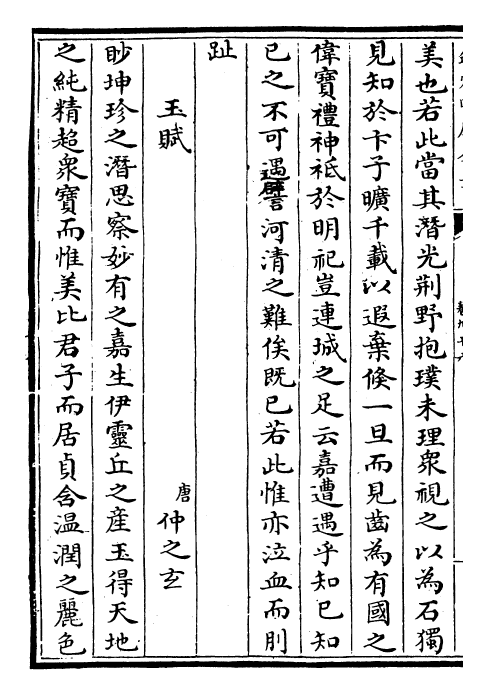 美也若此當其潛光荆野抱璞未理衆視之以為石獨
見知於卞子曠千載以遐棄倐一旦而見齒為有國之
偉寶禮神祗於明祀豈連城之足云嘉遭遇乎知已知
已之不可遇譬河清之難俟既已若此惟亦泣血而刖
趾
玉賦
唐 仲之玄
眇坤珍之潛思察妙有之嘉生伊靈丘之産玉得天地
之純精超衆寶而惟美比君子而居貞含温潤之麗色